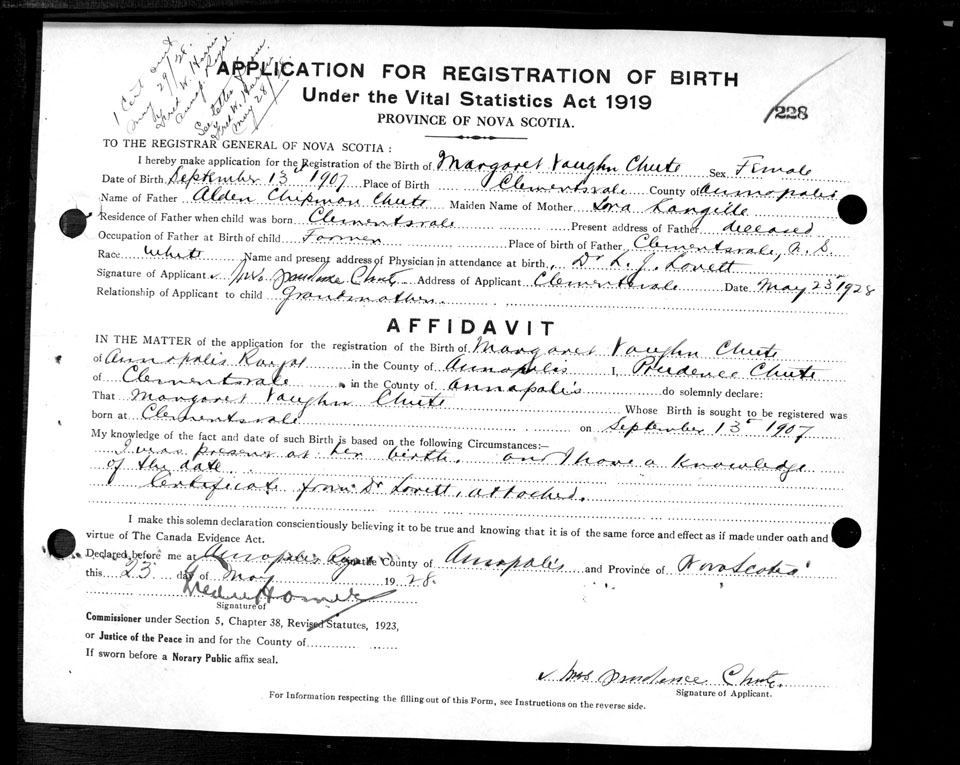 1 Cert sent
May 29/28.
by
Fred W. Harris
Annap. Royal.
See letter from
Fred W. Harris
May 28/28
APPLICATION FOR REGISTRATION OF BIRTH
Under the Vital Statistics Act 1919
PROVINCE OF NOVA SCOTIA.
228
TO THE REGISTRAR GENERAL OF NOVA SCOTIA:
I hereby make application for the Registration of the Birth of Margaret Vaughn Chute Sex Female
Date of Birth September 13th 1907 Place of Birth Clementsvale County of Annapolis
Name of Father Alden Chipman Chute Maiden Name of Mother Lora Langille
Residence of Father when child was born Clementsvale Present address of Father deceased
Occupation of Father at Birth of child Farmer Place of birth of Father Clementsvale, N. S.
Race White Name and present address of Physician in attendance at birth Dr L. J. Lovett
Signature of Applicant Mrs Prudence Chute Address of Applicant Clementsvale Date May 23 1928
Relationship of Applicant to child Grandmother
AFFIDAVIT
IN THE MATTER of the application for the registration of the Birth of Margaret Vaughn Chute
of Annapolis Royal in the County of Annapolis I, Prudence Chute
of Clementsvale in the County of Annapolis do solemnly declare:
That Margaret Vaughn Chute Whose Birth is sought to be registered was
born at Clementsvale on September 13th 1907
My knowledge of the fact and date of such Birth is based on the following Circumstances:—
I was present at her birth. and I have a knowledge
of the date.
Certificate from Dr Lovett, attached.
I make this solemn declaration conscientiously believing it to be true and knowing that it is of the same force and effect as if made under oath and
virtue of The Canada Evidence Act.
Declared before me at Annapolis Royal in the County of Annapolis and Province of Nova Scotia
this 23 day of May 1928.
Signature of
Commissioner under Section 5, Chapter 38, Revised Statutes, 1923,
or Justice of the Peace in and for the County of
If sworn before a Norary Public affix seal.
Mrs Prudence Chute.
Signature of Applicant.
For Information respecting the filling out of this Form, see Instructions on the reverse side.